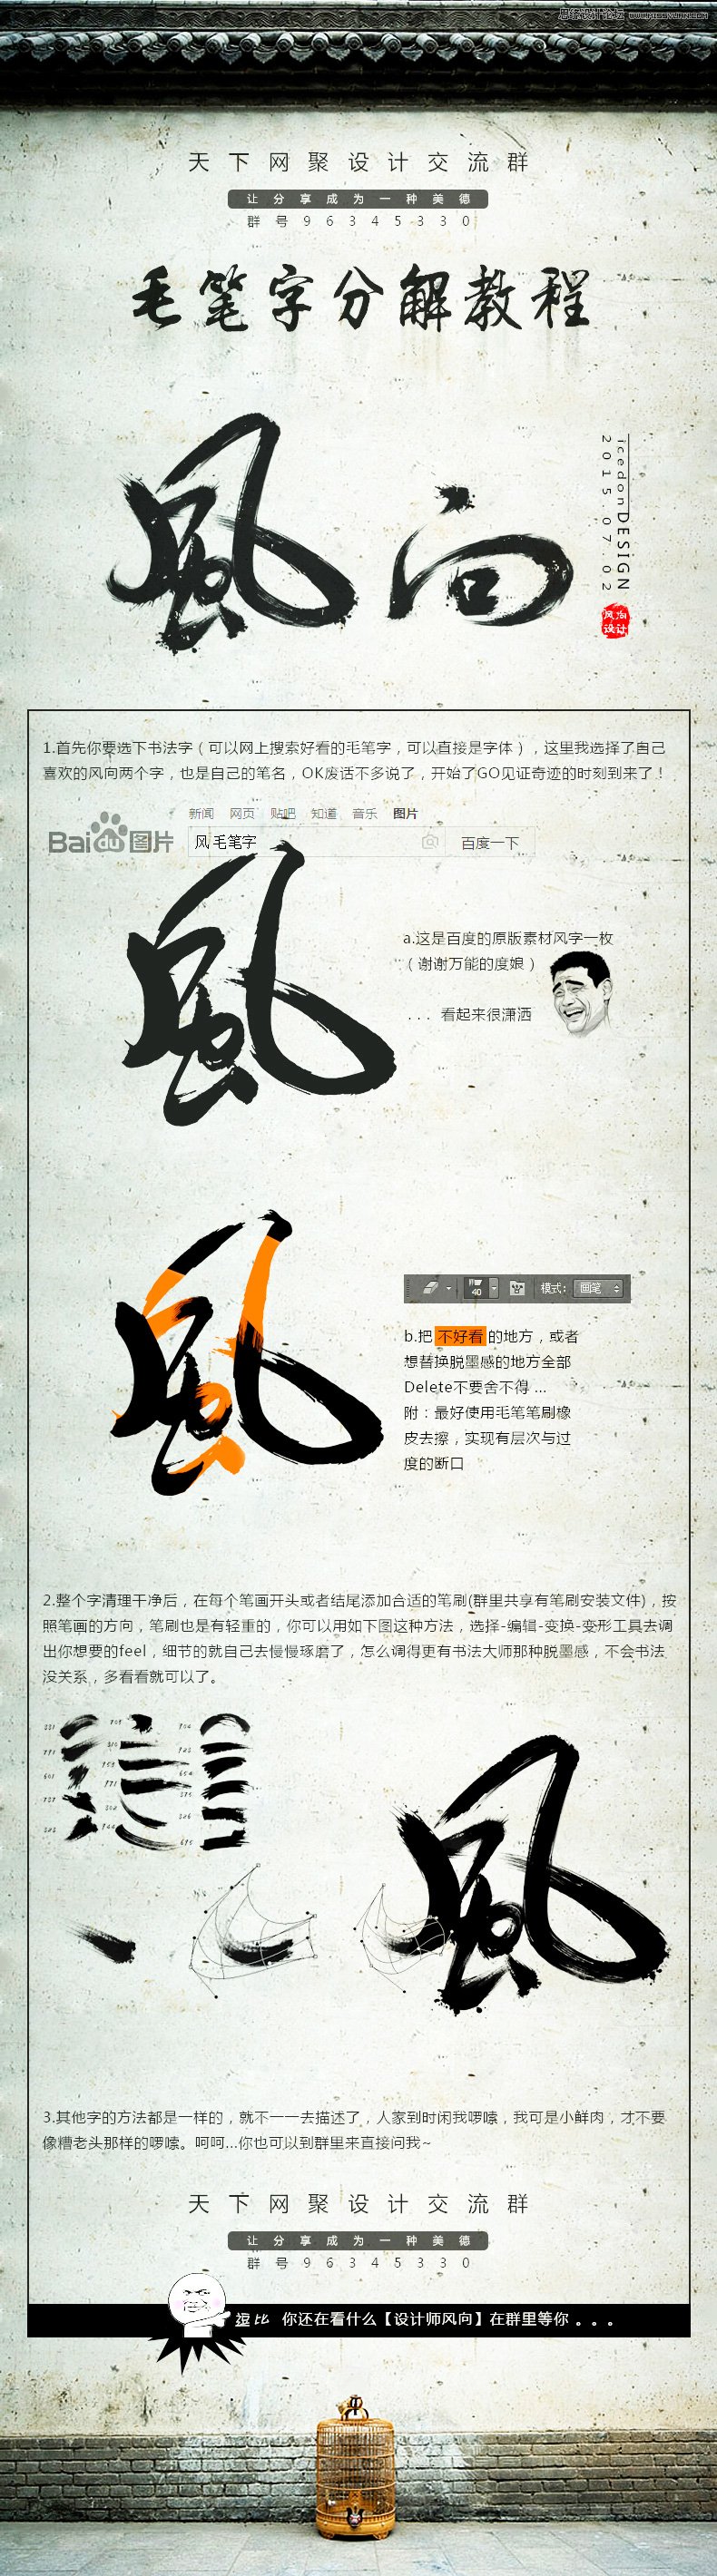 思缘设计论坛 WWW.MISSYUAN.COM
天下网聚设计交流群
让分享成为一种美德
群号96345330
毛笔字分解教程
風向
icedonDESIGN
2015.07.02
风向
设计
1.首先你要选下书法字（可以网上搜索好看的毛笔字，可以直接是字体），这里我选择了自己
喜欢的风向两个字，也是自己的笔名，OK废话不多说了，开始了GO见证奇迹的时刻到来了！
新闻 网页 贴吧 知道 音乐 图片
Bai du 图片
风 毛笔字
百度一下
風
a.这是百度的原版素材风字一枚
（谢谢万能的度娘）
... 看起来很潇洒
風
40 模式： 画笔
b.把 不好看 的地方，或者
想替换脱墨感的地方全部
Delete不要舍不得 ...
附：最好使用毛笔笔刷橡
皮去擦，实现有层次与过
度的断口
2.整个字清理干净后，在每个笔画开头或者结尾添加合适的笔刷(群里共享有笔刷安装文件)，按
照笔画的方向，笔刷也是有轻重的，你可以用如下图这种方法，选择-编辑-变换-变形工具去调
出你想要的feel，细节的就自己去慢慢琢磨了，怎么调得更有书法大师那种脱墨感，不会书法
没关系，多看看就可以了。
風
3.其他字的方法都是一样的，就不一一去描述了，人家到时闲我啰嗦，我可是小鲜肉，才不要
像糟老头那样的啰嗦。呵呵...你也可以到群里来直接问我~
天下网聚设计交流群
让分享成为一种美德
群号96345330
你还在看什么【设计师风向】在群里等你 。。。